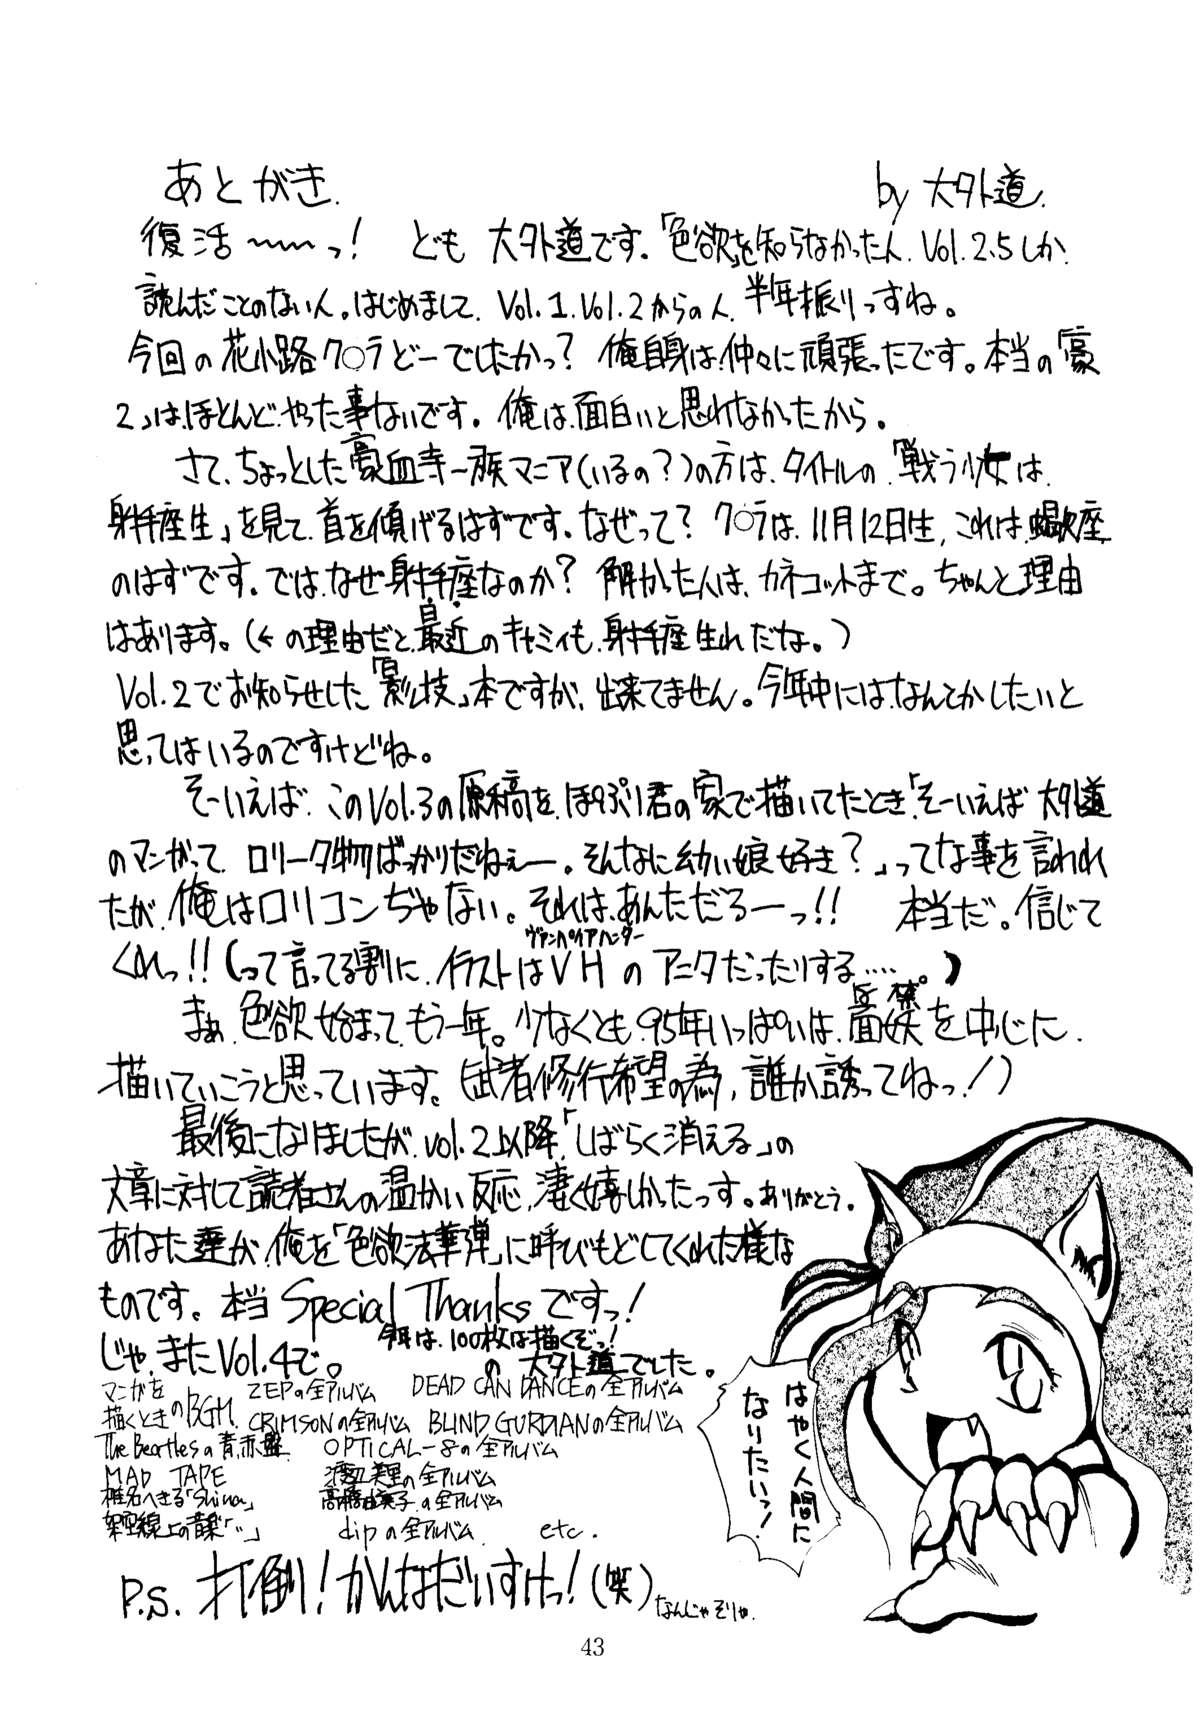 あとがき. by 大外道.
復活〜〜〜っ! ども 大外道です。「色欲」を知らなかった人、Vol.2.5しか
読んだことのない人。はじめまして、Vol.1.Vol.2からの人、半年振りっすね。
今回の花小路ク○ラどーでしたかっ? 俺自身は仲々に頑張ったです。本当の「豪
2」はほとんどやった事ないです。俺は面白いと思れなかったから。
さて、ちょっとした豪血寺一族マニア(いるの?)の方は、タイトルの「戦う少女は
射手座生」を見て、首を傾げるはずです。なぜって? ク○ラは、11月12日生、これは、蠍座
のはずです。では、なぜ射手座なのか? 解かった人は、カネコットまで。ちゃんと理由
はあります。(←の理由だと、最近のキャミィも、射手座生れだな。)
Vol.2でお知らせした「影技」本ですが、出来てません。今年中にはなんとかしたいと
思ってはいるのですけどね。
そーいえば、このVol.3の原稿を、ぽぷり君の家で描いてたとき、「そーいえば 大外道
のマンガって ロリータ物ばっかりだねぇー。そんなに幼い娘好き?」ってな事を言われ
たが、俺はロリコンぢゃない。それは、あんただろーっ!! 本当だ。信じて
くれっ!!(って言ってる割に、イラストはVHのアニタだったりする……。)
ヴァンパイアハンター
まぁ、色欲始まって、もう一年。少なくとも、95年いっぱいは、面妖を中心に、
描いていこうと思っています。(武者修行希望の為、誰か誘ってねっ!)
最後になりましたが、vol.2以降、「しばらく消える」の
文章に対して読者さんの温かい反応、凄く嬉しかったっす。ありがとう。
あなた達が、俺を「色欲法華弾」に呼びもどしてくれた様な
ものです。本当 Special Thanksですっ!
じゃ、またVol.4で。今年は、100枚は描くぞっ!
の 大外道でした。
マンガを描くときのBGM. ZEPの全アルバム DEAD CAN DANCEの全アルバム
CRIMSONの全アルバム BLIND GURDIANの全アルバム
The Beartlesの青,赤盤 OPTICAL-8の全アルバム
MAD TAPE 渡辺美里の全アルバム
椎名へきる「Shiena」 高橋由美子の全アルバム
架空線上の音楽「‥」 dipの全アルバム etc.
P.S. 打倒!かんなだいすけっ!(笑) なんじゃそりゃ.
はやく人間に
なりたいっ!
43